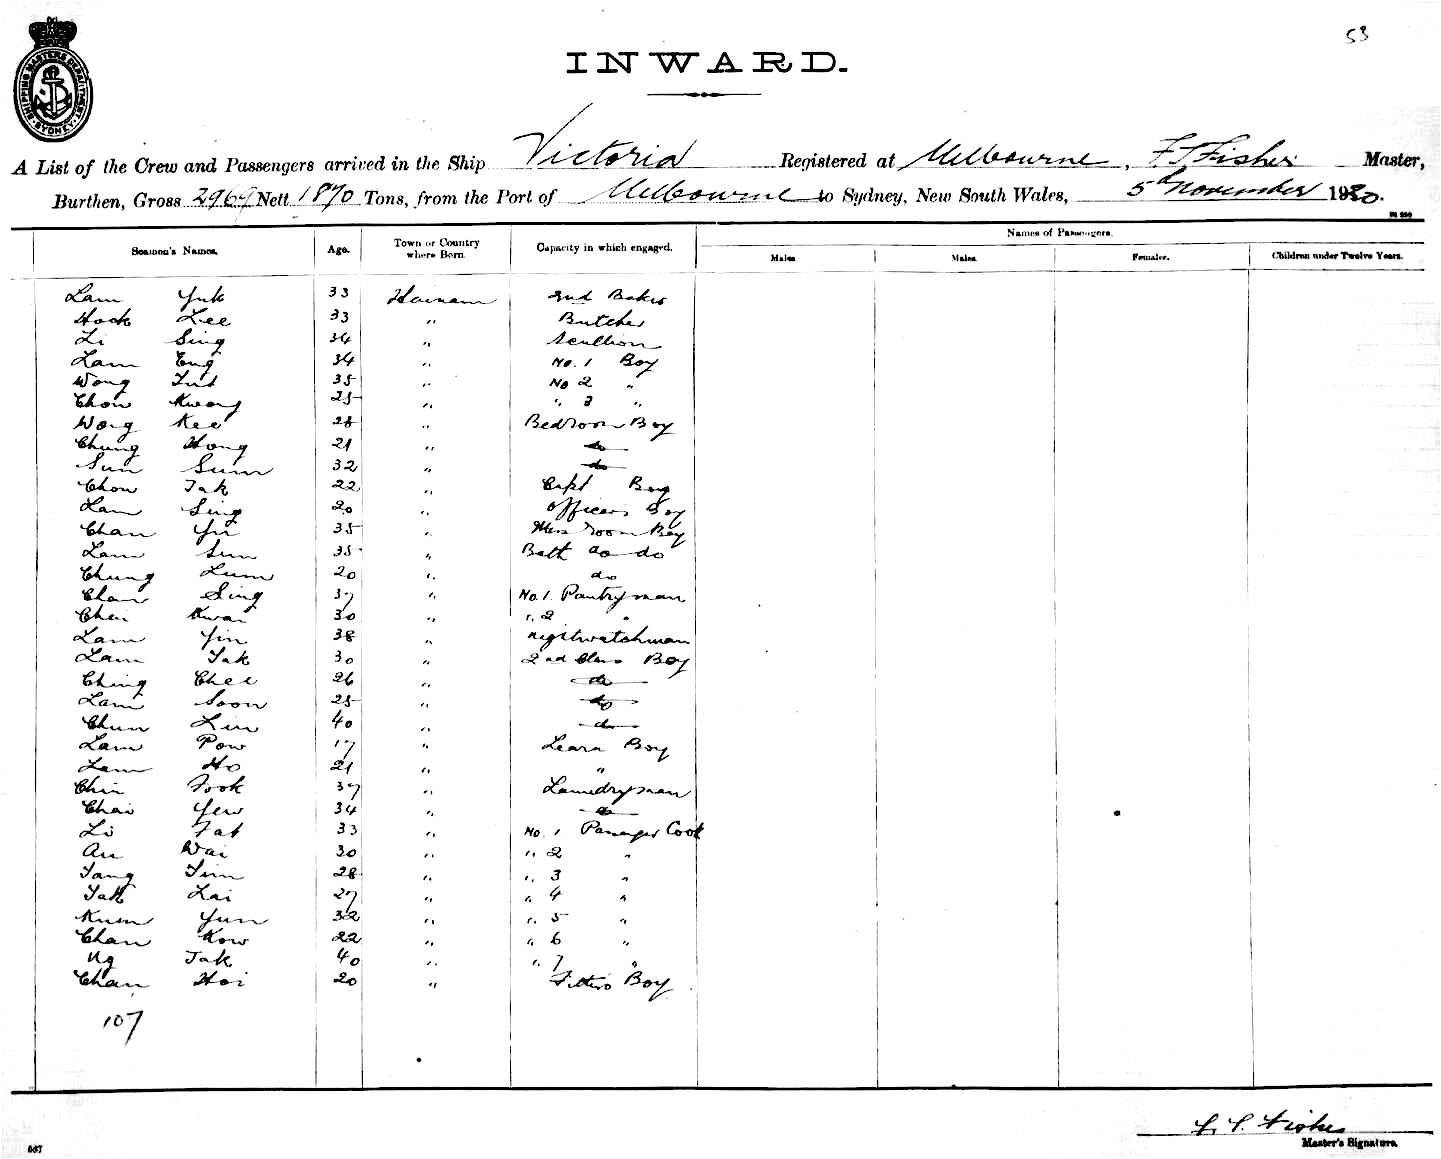 53
SHIPPING MASTERS DEPARTMENT. SYDNEY.
INWARD.
A List of the Crew and Passengers arrived in the Ship Victoria Registered at Melbourne, F. J. Fisher Master,
Burthen, Gross 2969 Nett 1870 Tons, from the Port of Melbourne to Sydney, New South Wales, 5th November 1930.
Names of Passengers.
Seamen's Names. Age. Town or Country where Born. Capacity in which engaged. Males Males Females. Children under Twelve Years.
Lam Yuk 33 Hainam 2nd Baker
Hock Lee 33 " Butcher
Li Sing 34 " Scullion
Lam Eng 34 " No. 1 Boy
Wong 35 " No 2 "
Chow Kwong 25 " " 3 "
Wong Kee 28 " Bedroom Boy
Chung Hong 21 " do
Sun Sum 32 " do
Chow Tak 22 " Capt Boy
Lam Sing 20 " Officers Boy
Chan 35 " Mess room Boy
Lam Sun 35 " Bath do do
Chung Lum 20 " do
Chan Sing 37 " No. 1. Pantryman
Chen Kwai 30 " " 2 "
Lam Yin 38 " Nightwatchman
Lam Tak 30 " 2nd Class Boy
Ching Chee 26 " do
Lam Soon 25 " do
Chun Lin 40 " do
Lam Pow 17 " Learn Boy
Lam Ho 21 " "
Chin Fook 37 " Laundryman
Chai Yew 34 " do
Li Fat 33 " No. 1 Passenger Cook
Au Wai 30 " " 2 "
Tang Tim 28 " " 3 "
Tak Lai 27 " " 4 "
Kum Yun 32 " " 5 "
Chan Kow 22 " " 6 "
Ng Tak 40 " " 7 "
Chan Hoi 20 " Fitters Boy
107
F. J. Fisher
Master's Signature.